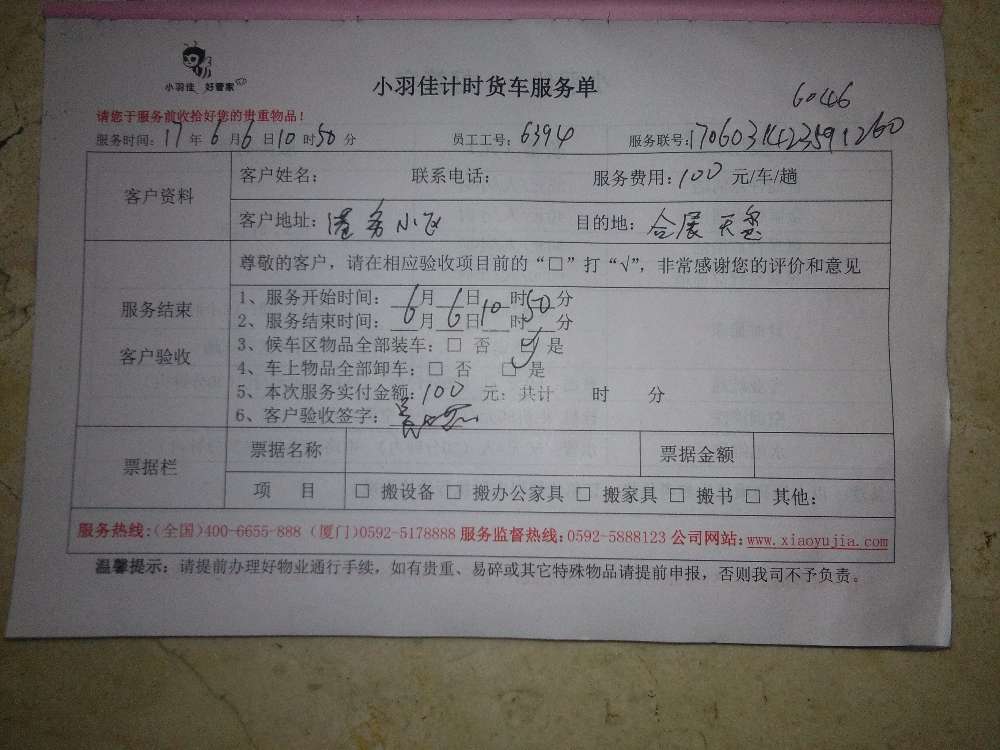 小羽佳 好管家
小羽佳计时货车服务单
6046
请您于服务前收拾好您的贵重物品！
服务时间：17年6月6日10时50分 员工工号：6394 服务联号：1706031423591260
客户资料
客户姓名： 联系电话： 服务费用：100 元/车/趟
客户地址：港务小区 目的地：会展天玺
尊敬的客户，请在相应验收项目前的“□”打“√”，非常感谢您的评价和意见
服务结束
客户验收
1、服务开始时间：6月6日10时50分
2、服务结束时间：___月___日___时___分
3、候车区物品全部装车：□ 否 ☑ 是
4、车上物品全部卸车：□ 否 □ 是
5、本次服务实付金额：100 元；共计 时 分
6、客户验收签字：
票据栏
票据名称 票据金额
项 目 □ 搬设备 □ 搬办公家具 □ 搬家具 □ 搬书 □ 其他：
服务热线：（全国）400-6655-888（厦门）0592-5178888 服务监督热线：0592-5888123 公司网站：www.xiaoyujia.com
温馨提示：请提前办理好物业通行手续，如有贵重、易碎或其它特殊物品请提前申报，否则我司不予负责。